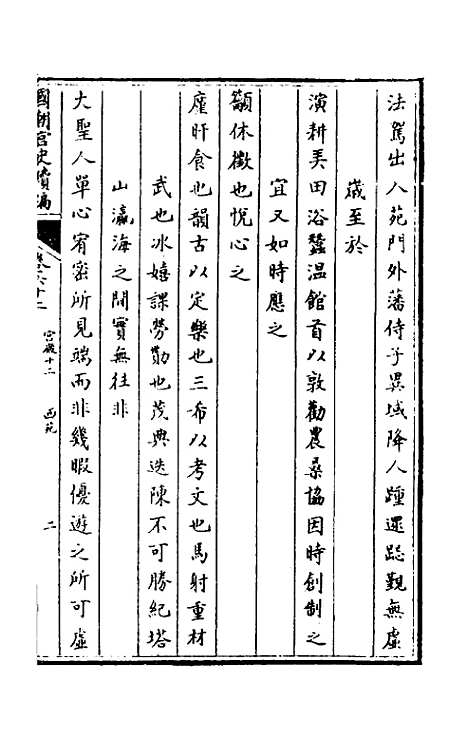 法駕出入苑門外藩侍子異域降人踵還跽覲無虛
歲至於
演耕美田浴蠶温館首以敦勸農桑協因時創制之
宜又如時應之
籲休徵也悅心之
廑旰食也韻古以定樂也三希以考文也馬射重材
武也冰嬉課勞勩也茂典迭陳不可勝紀塔
山瀛海之間實無往非
大聖人單心宥密所見端而非幾暇優遊之所可虛
國朝宫史續編
卷六十二
宫殿十二
西苑
二